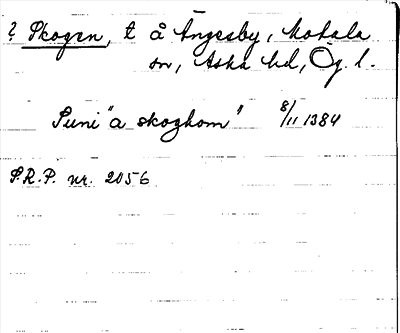 ? Skogen, t å Ängesby, Motala
sn, Aska hd, Ög. l.
Suni "a skoghom" 8/11 1384
S.R.P. nr. 2056